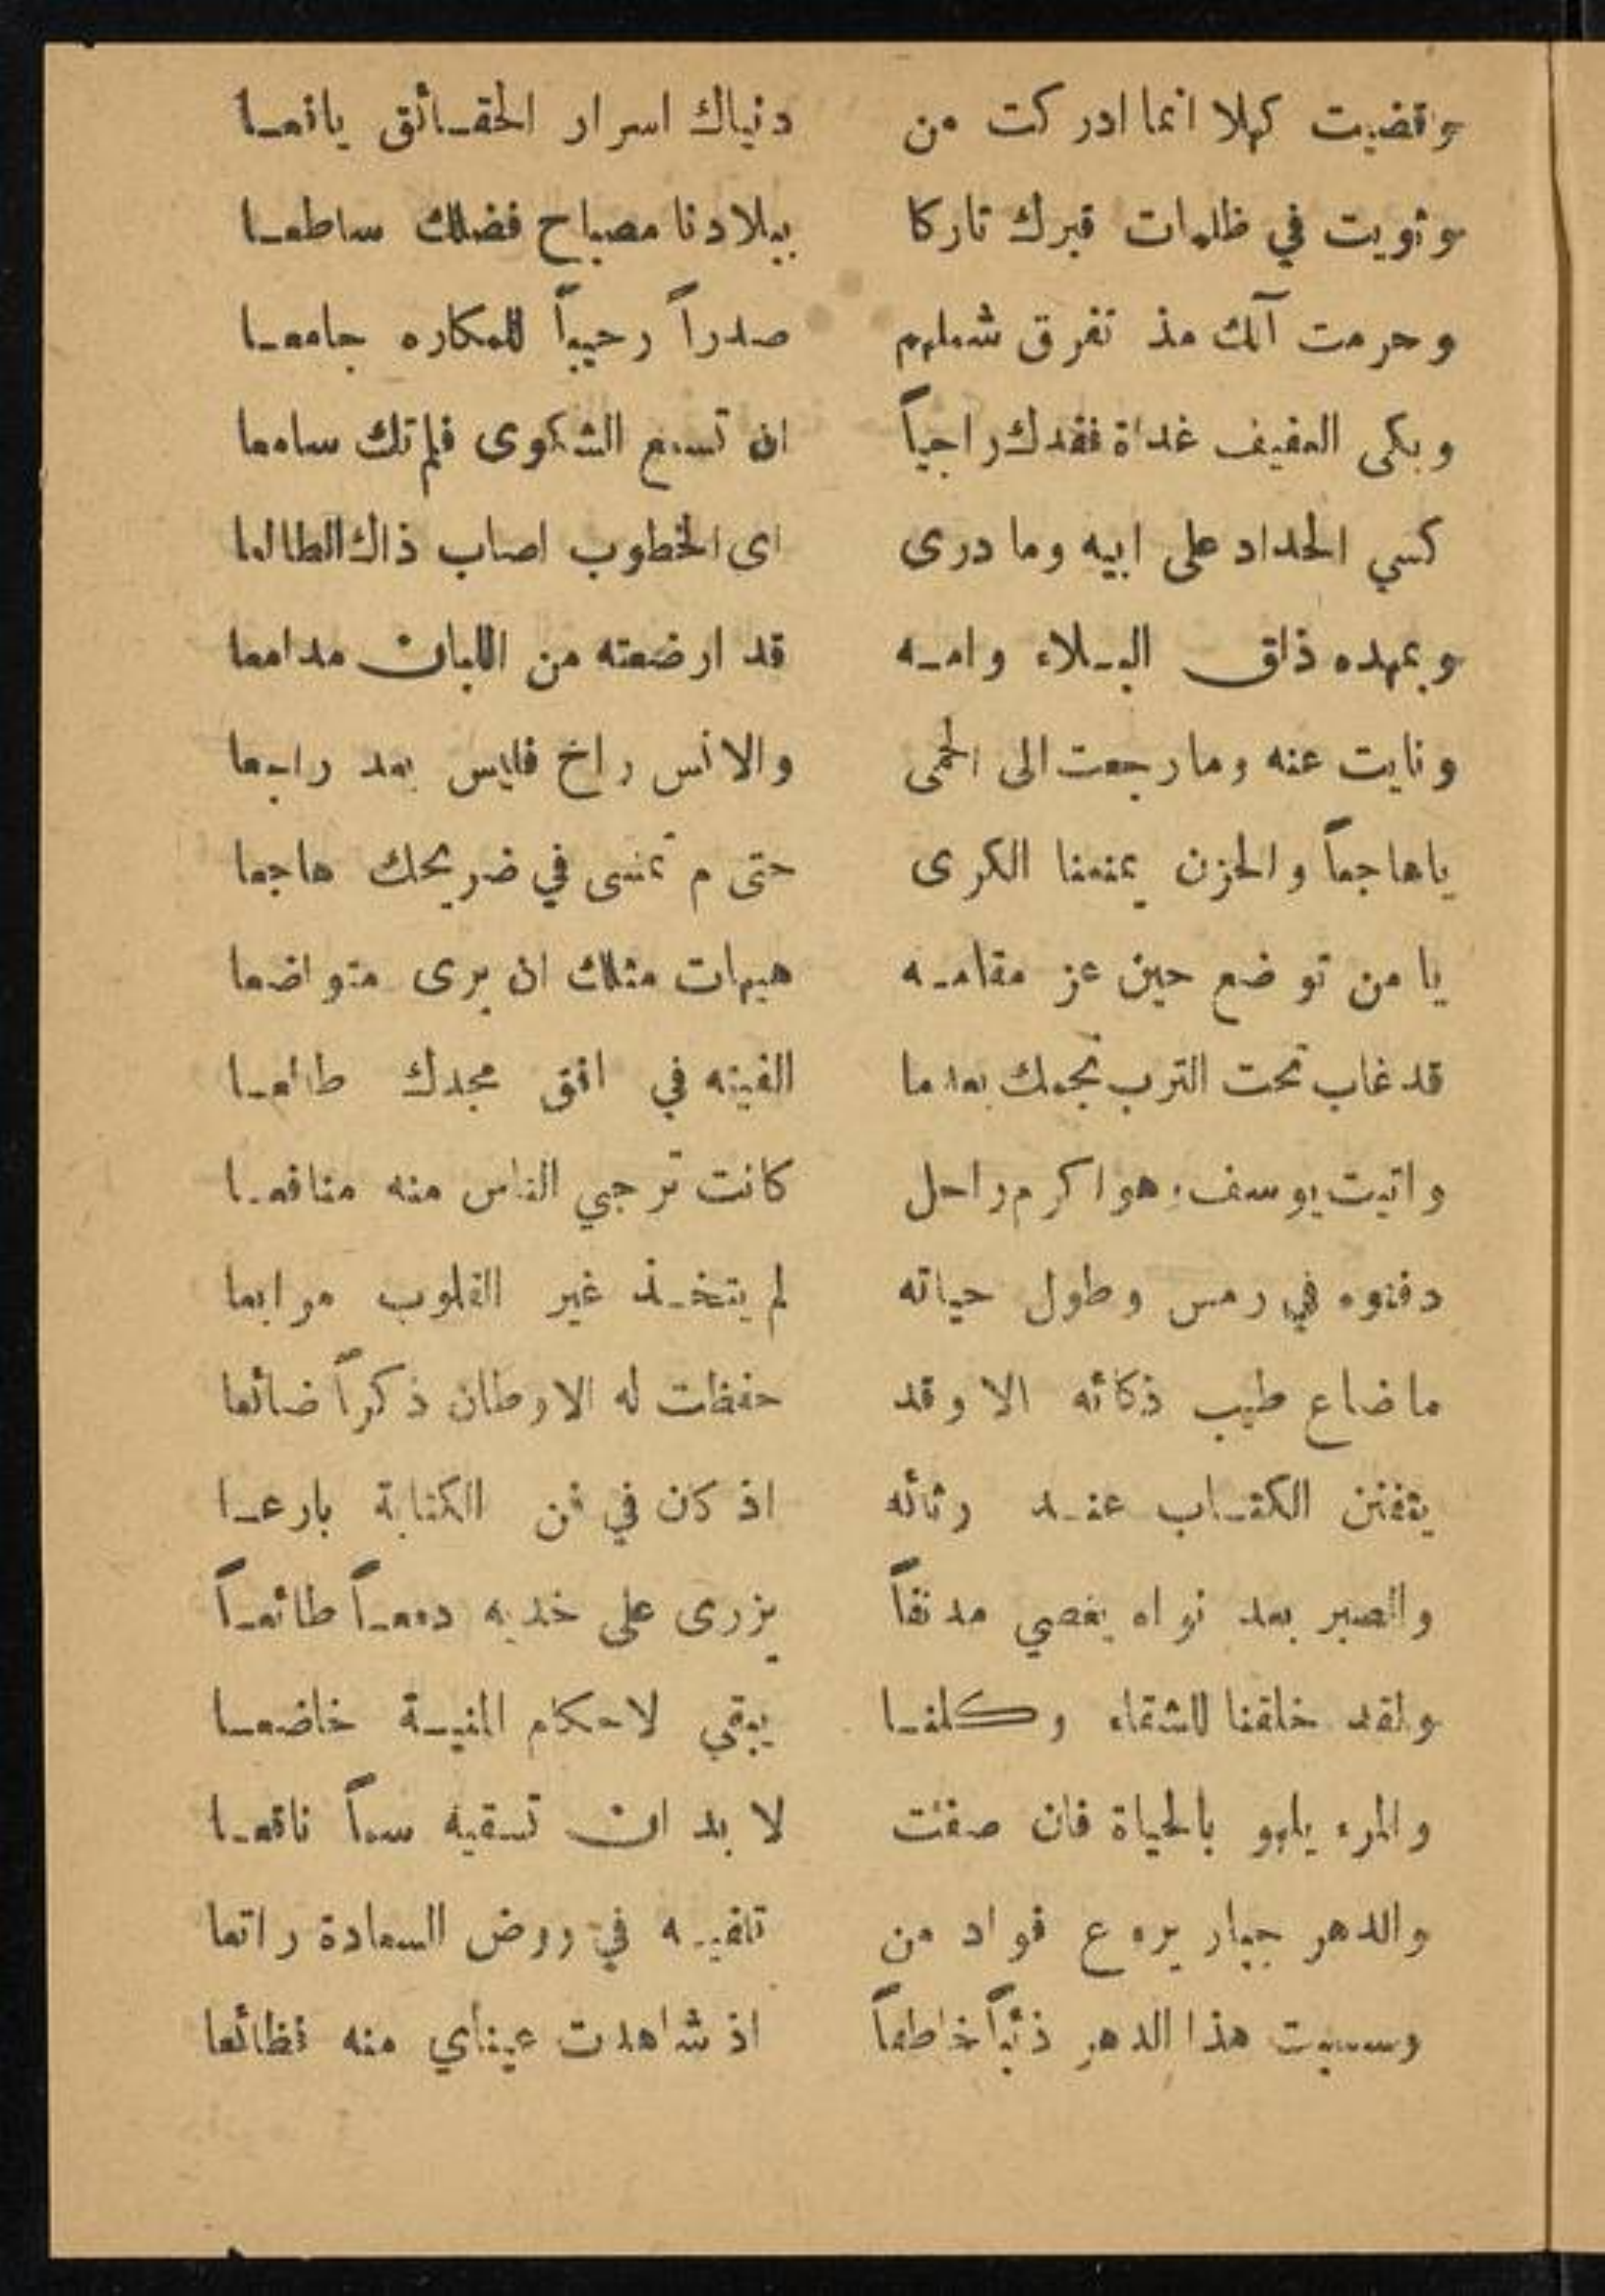 وقضيت كهلا انما ادركت من دنياك اسرار الحقائق يافعا
وثويت في ظلمات قبرك تاركا ببلادنا مصباح فضلك ساطعا
وحرمت آلك مذ تفرق شملهم صدراً رحيباً للمكاره جامعا
وبكى العفيف غداة فقدك راجياً ان تسمع الشكوى فلم تك سامعا
كسي الحداد على ابيه وما درى اى الخطوب اصاب ذاك الطالعا
وبمهده ذاق البلاء وامه قد ارضعته من اللبان مدامعا
ونايت عنه وما رجعت الى الحمى والانس راخ فليس بعد رابعا
ياهاجعاً والحزن يمنعنا الكرى حتى م تمسى في ضريحك هاجعا
يا من توضع حين عز مقامه هيهات مثلك ان يرى متواضعا
قد غاب تحت الترب نجمك بعدما الفيته في افق مجدك طالعا
واتيت يوسف وهو اكرم راحل كانت ترجي الناس منه منافعا
دفنوه في رمس وطول حياته لم يتخذ غير القلوب مرابعا
ما ضاع طيب ذكائه الا وقد حفظت له الاوطان ذكراً ضائعا
يتفنن الكتاب عند رثائه اذ كان في فن الكتابة بارعا
والصبر بعد نواه يعصي مدنفاً يزرى على خديه دمعاً طائعاً
ولقد خلقنا للشقاء وكلنا يبقي لاحكام المنية خاضعا
والمرء يلهو بالحياة فان صفت لا بد ان تسقيه سماً ناقعا
والدهر جبار يروع فواد من تلفيه في روض السعادة راتعا
وسبيت هذا الدهر ذئباً خاطعاً اذ شاهدت عيناي منه فظائعا